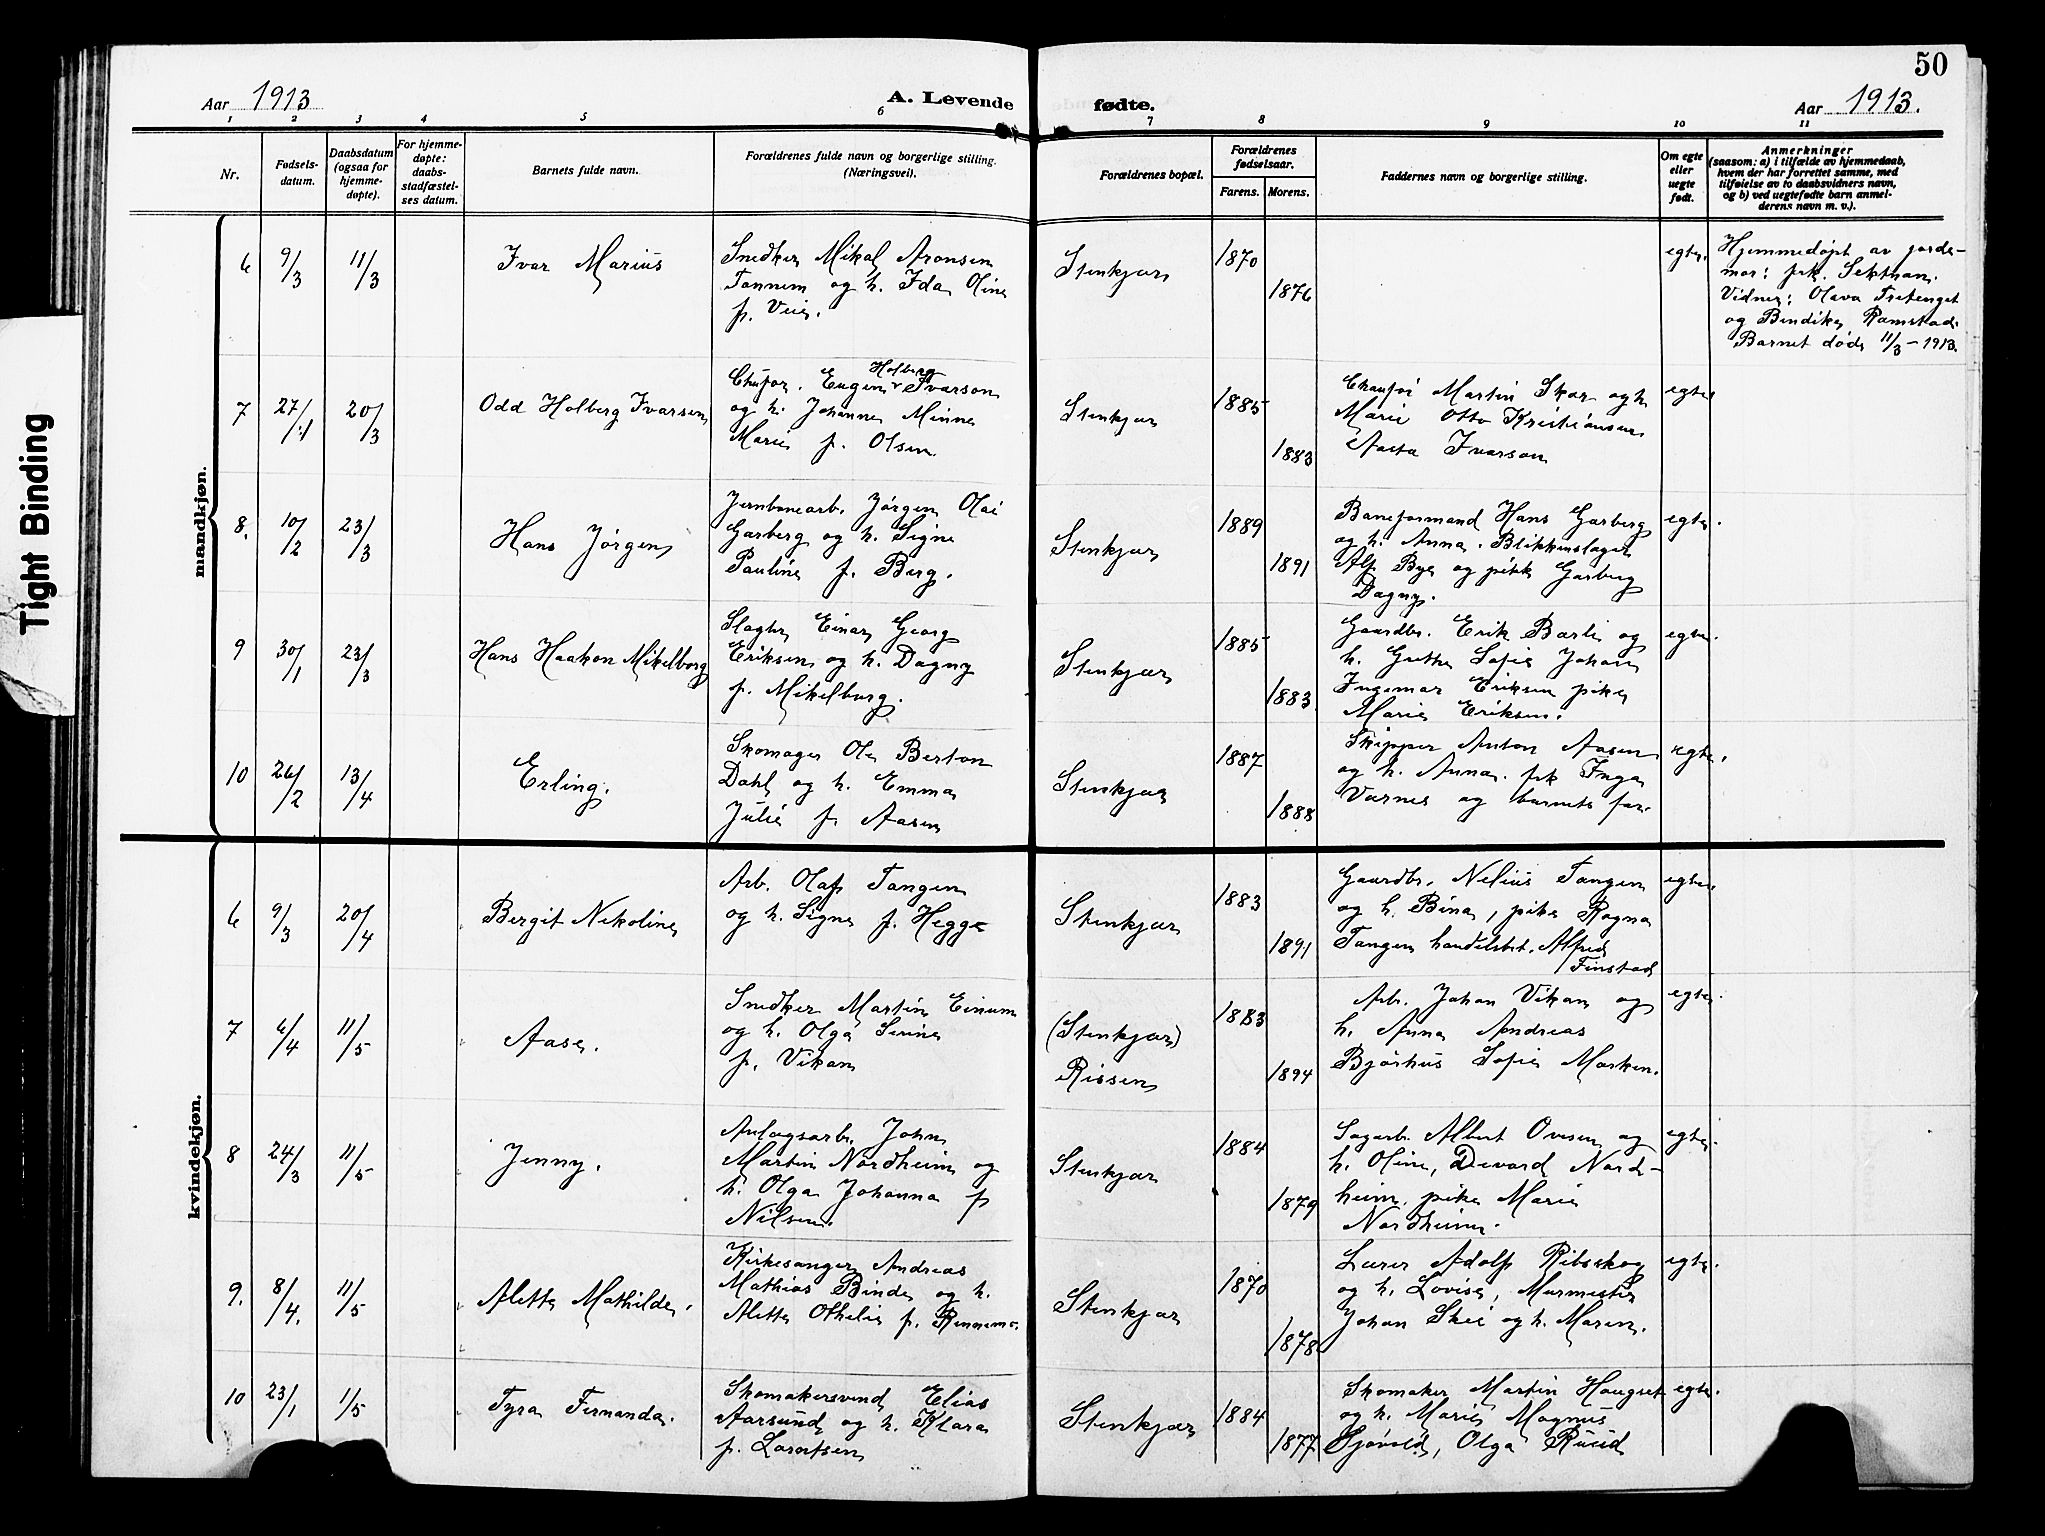 50
Aar 1913
A. Levende
fødte.
Aar 1913.
1 2 3 4 5 6 7 8 9 10 11
Nr.
Fødsels-
datum.
Daabsdatum
(ogsaa for
hjemme-
døpte).
For hjemme-
døpte:
daabs-
stadfæstel-
ses datum.
Barnets fulde navn.
Forældrenes fulde navn og borgerlige stilling.
(Næringsvei).
Forældrenes bopæl.
Forældrenes
fødselsaar.
Farens. Morens.
Faddernes navn og borgerlige stilling.
Om egte
eller
uegte
født.
Anmerkninger
(saasom: a) i tilfælde av hjemmedaab,
hvem der har forrettet samme, med
tilføielse av to daabsvidners navn,
og b) ved uegtefødte barn anmel-
derens navn m. v.).
Tight Binding
mandkjøn.
6 9/3 11/3
Ivar Marius
Snedker Mikal Aronsen
Tannem og h. Ida Oline
f. Veie.
Stenkjær
1870
1876
egte.
Hjemmedøpt av jorde-
mor: frk. Sektnan.
Vidner: Olava Tretenget
og Bendike Ramstad.
Barnet døde 11/3 - 1913.
7 27/11 20/3
Odd Holberg Ivarsen
Chufør. Eugen Holberg Ivarson
og h. Johanne Minne
Marie f. Olsen
Stenkjær
1885
1883
Chaufør Martin Skar og h.
Marie Otto Kristiansen
Aasta Ivarson
egte
8. 10/2 23/3
Hans Jørgen
Jernbanearb. Jørgen Olai
Garberg og h. Signe
Pauline f. Berg.
Stenkjær
1889
1891
Baneformand Hans Garberg
og h. Anna. Blikkenslager
Alf Bye og pike Garberg
Dagny.
egte.
9 30/1 23/3
Hans Haakon Mikelborg
Slagter Einar Georg
Eriksen og h. Dagny
f. Mikelborg.
Stenkjær
1885
1883
Gaardbr. Erik Barli og
h. Grethe Sofie Johan
Ingemar Eriksen pike
Marie Eriksen.
egte.
10 26/2 13/4
Erling.
Skomager Ole Berton
Dahl og h. Emma
Julie f. Aasen
Stenkjær
1887
1888
Skipper Anton Aasen
og h. Anna. frk Inga
Værnes og barnets far.
egte.
kvindekjøn.
6 9/3 20/4
Bergit Nikoline
Arb. Olaf Tangen
og h. Signe f. Hegge
Stenkjær
1883
1891
Gaardbr. Nelius Tangen
og h. Bina, pike Ragna
Tangen handelsbet. Alfred
Finstad
egte.
7 6/4 11/5
Aase.
Snedker Martin Einum
og h. Olga Sevine
f. Vikan
(Stenkjær)
Rissen
1883
1894
Arb. Johan Vikan og
h. Anna Andreas
Bjørhus Sofie Marken.
egte.
8 24/3 11/5
Jenny.
Anlægsarb. John
Martin Nordheim og
h. Olga Johanna f
Nilsen.
Stenkjær
1884
1879
Sagarb. Albert Ovesen og
h. Oline, Devard Nord-
heim, pike Marie
Nordheim.
egte.
9. 8/4. 11/5
Alette Mathilde.
Kirkesanger Andreas
Mathias Binde og h.
Alette Othelie f. Rennemo.
Stenkjær
1870
1878
Lærer Adolf Ribsskog
og h. Lovise, Murmester
Johan Skei og h. Maren.
egte.
10 23/1 11/5
Tyra Fernanda.
Skomakersvend Elias
Aarsund og h. Klara
f. Lorentsen
Stenkjær
1884
1877
Skomaker Martin Haugset
og h. Marie Magnus
Sjøvold, Olga Ruud
egte.